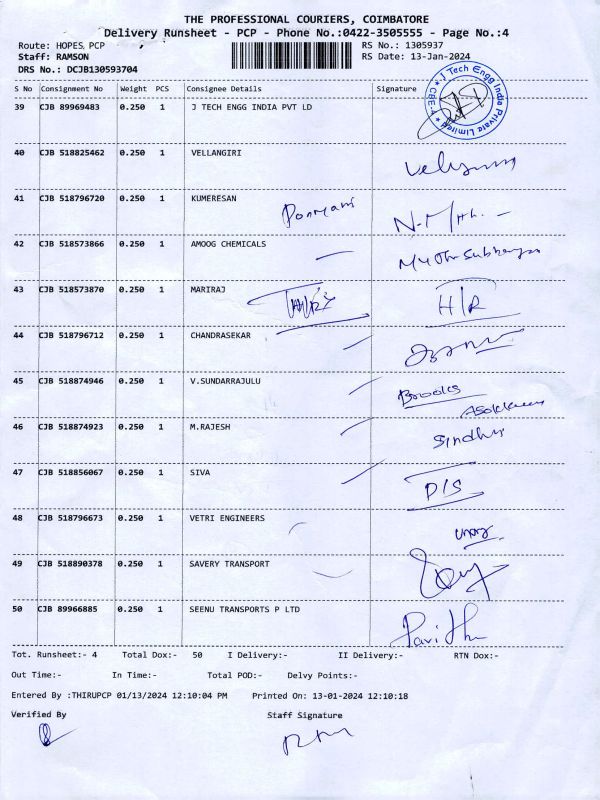 THE PROFESSIONAL COURIERS, COIMBATORE
Delivery Runsheet - PCP - Phone No.:0422-3505555 - Page No.:4
Route: HOPES, PCP RS No.: 1305937
Staff: RAMSON RS Date: 13-Jan-2024
DRS No.: DCJB130593704
S No Consignment No Weight PCS Consignee Details Signature
39 CJB 89969483 0.250 1 J TECH ENGG INDIA PVT LD
J Tech Engg India Private Limited CBE-4
40 CJB 518825462 0.250 1 VELLANGIRI
41 CJB 518796720 0.250 1 KUMERESAN
42 CJB 518573866 0.250 1 AMOOG CHEMICALS
43 CJB 518573870 0.250 1 MARIRAJ H/R
44 CJB 518796712 0.250 1 CHANDRASEKAR
45 CJB 518874946 0.250 1 V.SUNDARRAJULU Brooks
46 CJB 518874923 0.250 1 M.RAJESH Sindhu
47 CJB 518856067 0.250 1 SIVA D/S
48 CJB 518796673 0.250 1 VETRI ENGINEERS
49 CJB 518890378 0.250 1 SAVERY TRANSPORT
50 CJB 89966885 0.250 1 SEENU TRANSPORTS P LTD
Tot. Runsheet:- 4 Total Dox:- 50 I Delivery:- II Delivery:- RTN Dox:-
Out Time:- In Time:- Total POD:- Delvy Points:-
Entered By :THIRUPCP 01/13/2024 12:10:04 PM Printed On: 13-01-2024 12:10:18
Verified By Staff Signature